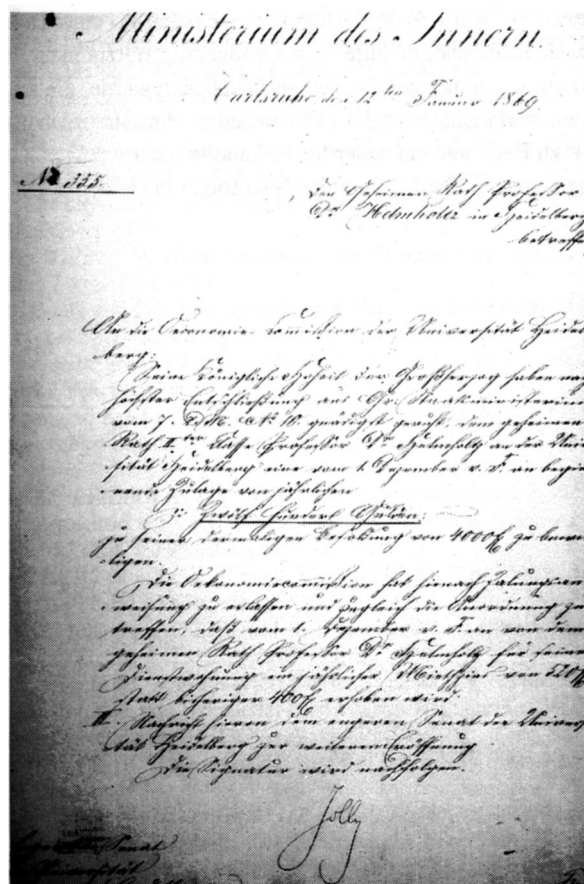 Ministerium des Innern.
Carlsruhe, den 12ten Januar 1869.
No 355.
Den Geheimen Rath Professor
Dr Helmholtz in Heidelberg
betreffend
An die Oeconomie-Commission der Universität Heidel
berg:
Seine Königliche Hoheit der Großherzog haben
höchster Entschließung aus Gr. Staatsministerium
vom 7. d. M. No 10. gnädigst geruht, dem geheimen
Rath IIter Classe Professor Dr Helmholtz an der Univer
sität Heidelberg eine vom 1. Dezember v. J. an begin
nende Zulage von jährlichen
Zwölf hundert Gulden
zu seiner dermaligen Besoldung von 4000 f zu bewil
ligen.
Die Oekonomiecommission hat hienach Zalungsan
weisung zu erlassen und zugleich die Anordnung zu
treffen, daß vom 1. Dezember v. J. an von dem
geheimen Rath Professor Dr Helmholtz für seine
Dienstwohnung ein jährlicher Miethzins von 520 f
statt bisheriger 400 f erhoben wird.
II. Nachricht hievon dem engeren Senat der Univer
tät Heidelberg zur weiteren Eröffnung
Die Signatur wird nachfolgen.
Jolly
Senat
Universität